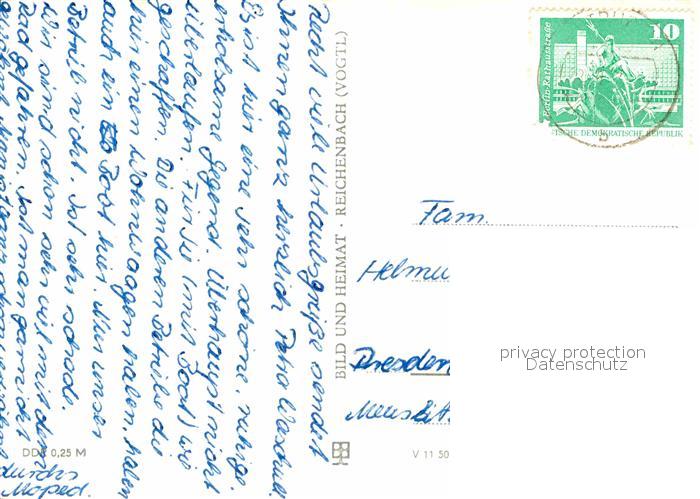 Recht viele Urlaubsgrüße sendet
Ihnen ganz herzlich Petra
Es ist hier eine sehr schöne, ruhige
erholsame Gegend. Überhaupt nicht
überlaufen. Für Sie (mit Boot) wie
geschaffen. Die anderen Betriebe die
hier einen Wohnwagen haben, haben
auch ein Boot hier. Nur unser
Betrieb nicht. Ist sehr schade.
Wir sind schon sehr viel mit dem
Rad gefahren.
durchs
Moped.
DDR 0,25 M
BILD UND HEIMAT · REICHENBACH (VOGTL)
V 11 50
Berlin-Rathausstraße
10
DEMOKRATISCHE REPUBLIK
Fam.
Helmu
Dresden
privacy protection
Datenschutz